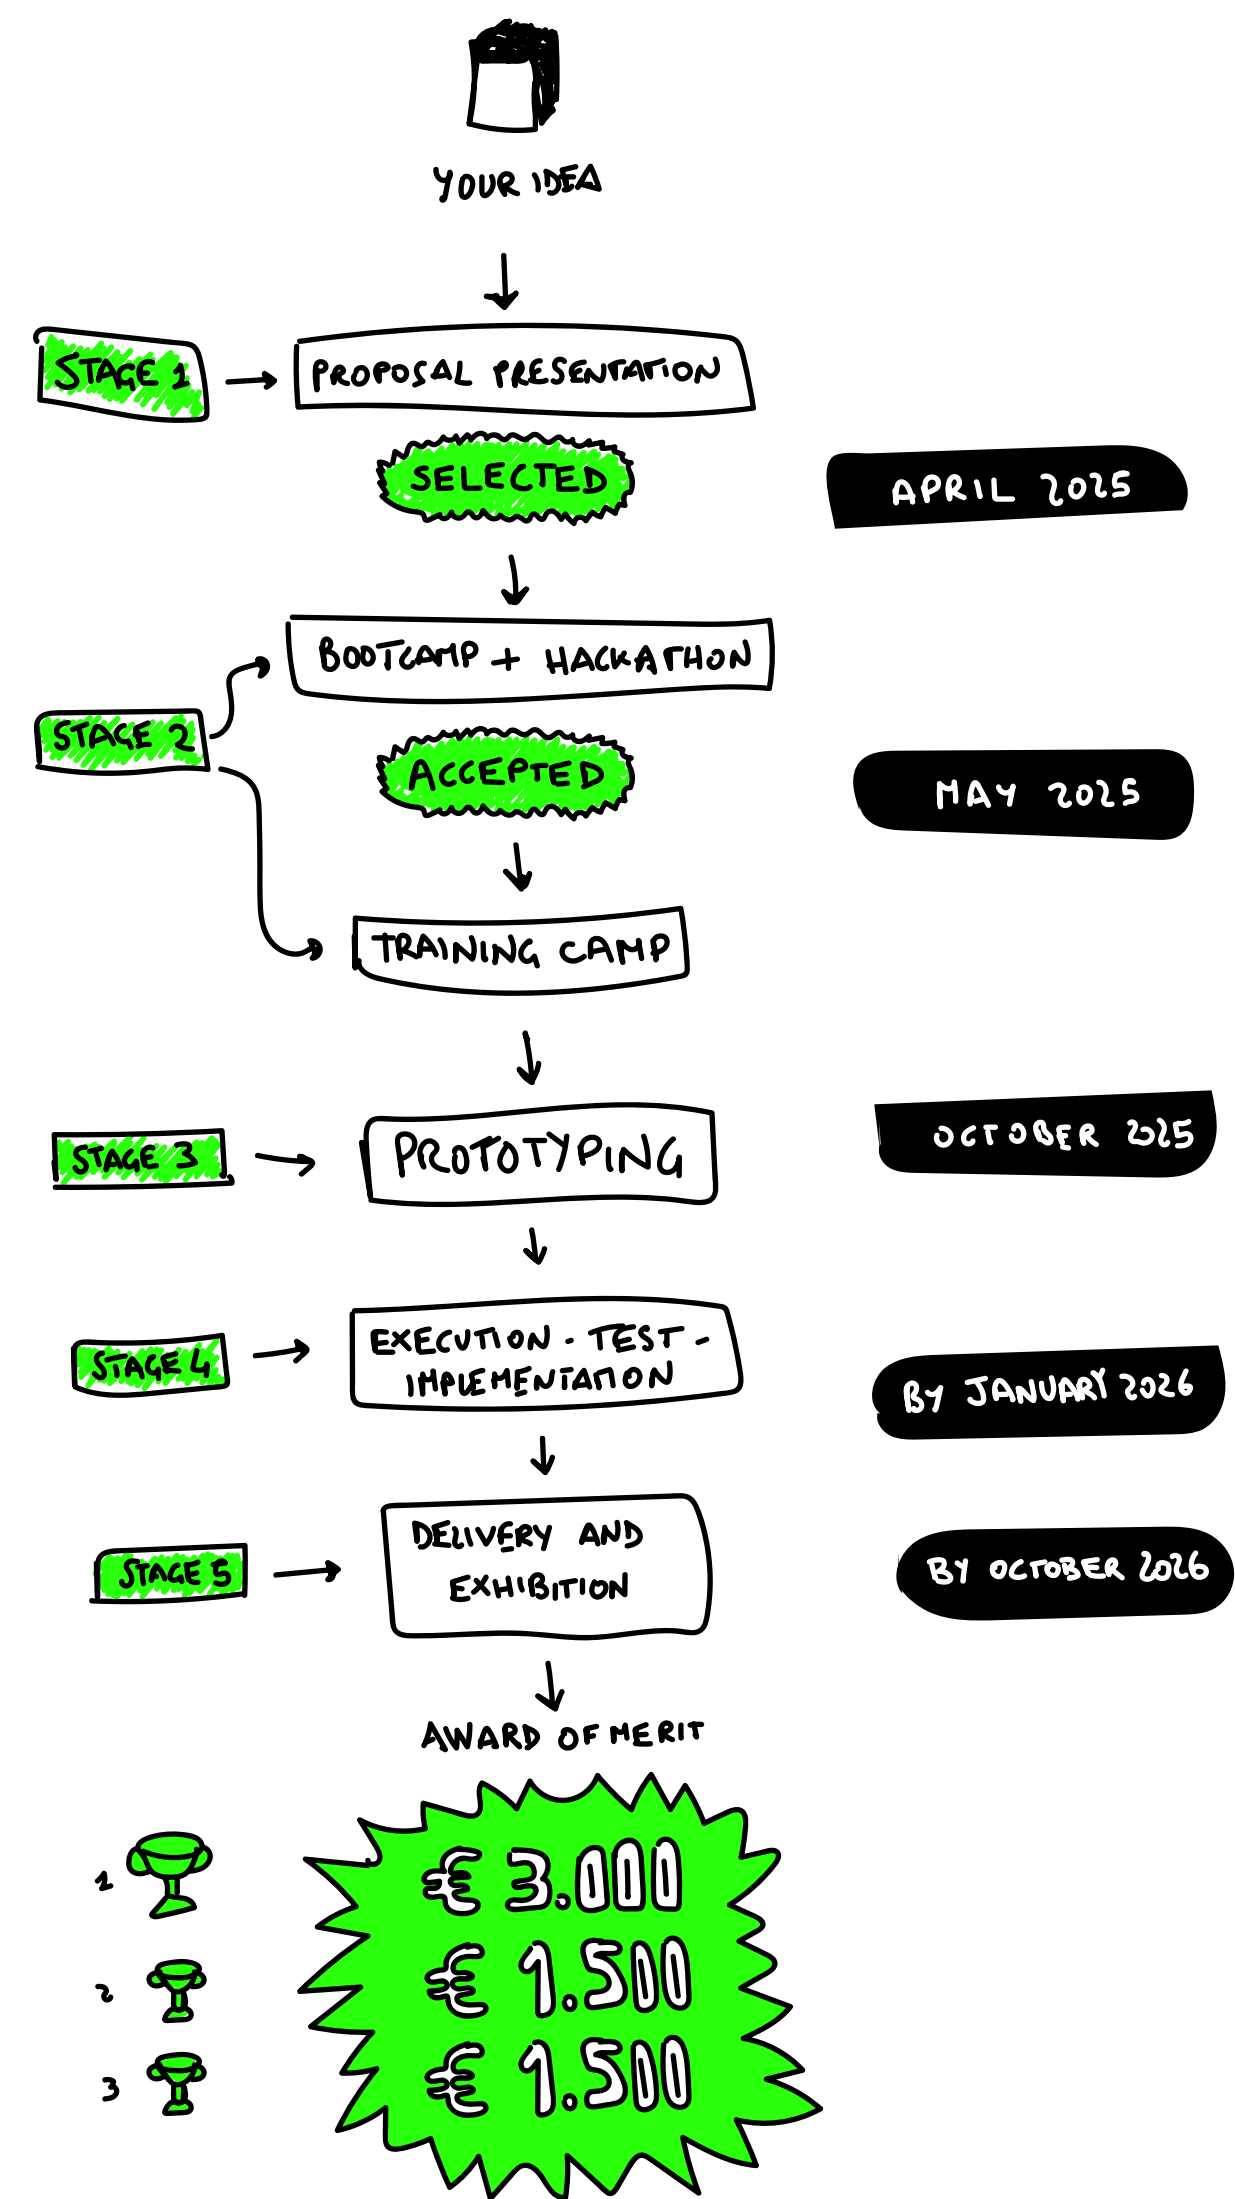 YOUR IDEA
STAGE 1
PROPOSAL PRESENTATION
SELECTED
APRIL 2025
BOOTCAMP + HACKATHON
STAGE 2
ACCEPTED
MAY 2025
TRAINING CAMP
STAGE 3
PROTOTYPING
OCTOBER 2025
STAGE 4
EXECUTION - TEST -
IMPLEMENTATION
BY JANUARY 2026
STAGE 5
DELIVERY AND
EXHIBITION
BY OCTOBER 2026
AWARD OF MERIT
1
€ 3.000
2
€ 1.500
3
€ 1.500